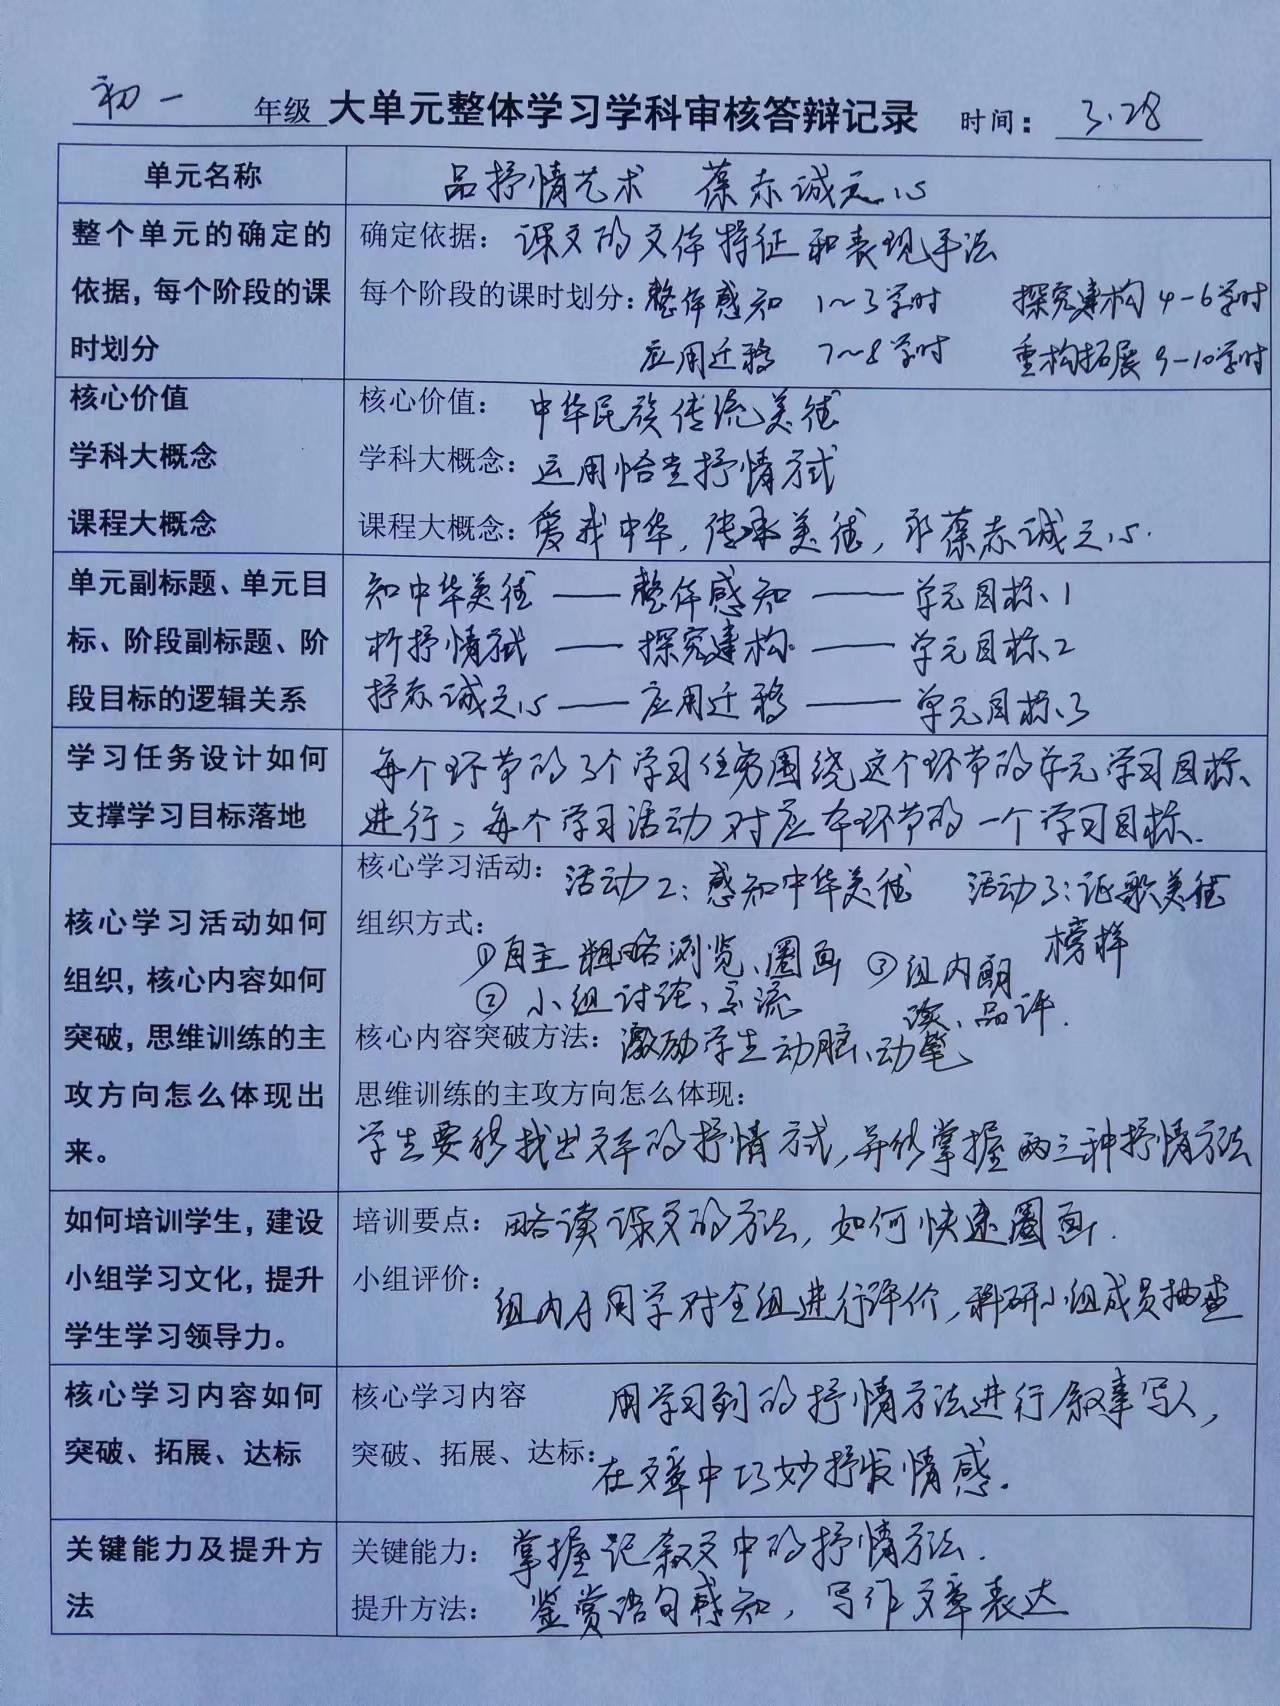 初一 年级 大单元整体学习学科审核答辩记录 时间：3.28
单元名称
品抒情艺术 葆赤诚之心
整个单元的确定的
依据，每个阶段的课
时划分
确定依据：课文的文体特征和表现手法
每个阶段的课时划分：整体感知 1～3学时 探究建构 4-6学时
应用迁移 7～8学时 重构拓展 9-10学时
核心价值
学科大概念
课程大概念
核心价值：中华民族传统美德
学科大概念：运用恰当抒情方式
课程大概念：爱我中华，传承美德，永葆赤诚之心.
单元副标题、单元目
标、阶段副标题、阶
段目标的逻辑关系
知中华美德 —— 整体感知 —— 单元目标1
析抒情方式 —— 探究建构 —— 单元目标2
抒赤诚之心 —— 应用迁移 —— 单元目标3
学习任务设计如何
支撑学习目标落地
每个环节的3个学习任务围绕这个环节的单元学习目标
进行，每个学习活动对应本环节的一个学习目标.
核心学习活动如何
组织，核心内容如何
突破，思维训练的主
攻方向怎么体现出
来。
核心学习活动：活动2：感知中华美德 活动3：讴歌美德
榜样
组织方式：
①自主粗略浏览、圈画 ③组内朗
②小组讨论、交流 读、品评.
核心内容突破方法：激励学生动脑、动笔
思维训练的主攻方向怎么体现：
学生要能找出文章的抒情方式，并能掌握两三种抒情方法
如何培训学生，建设
小组学习文化，提升
学生学习领导力。
培训要点：略读课文的方法，如何快速圈画.
小组评价：
组内各用学对全组进行评价，科研小组成员抽查
核心学习内容如何
突破、拓展、达标
核心学习内容 用学习到的抒情方法进行叙事写人，
突破、拓展、达标：在文章中巧妙抒发情感.
关键能力及提升方
法
关键能力：掌握记叙文中的抒情方法.
提升方法：鉴赏语句感知，写作文章表达